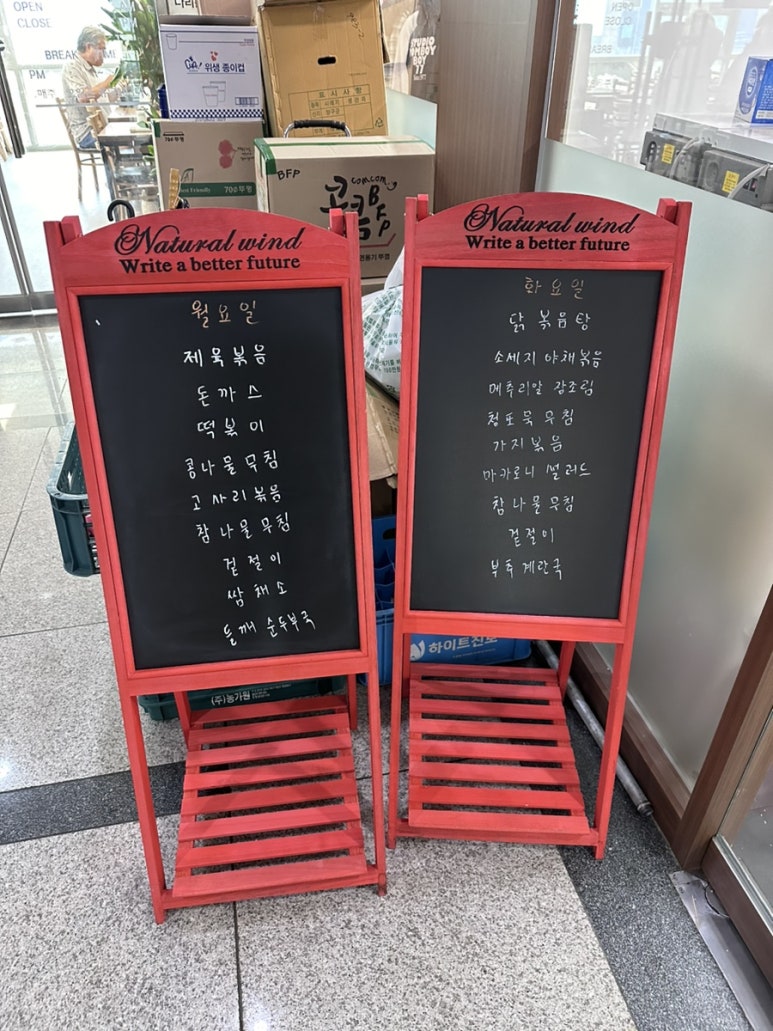 OPEN
CLOSE
BREAK
PM
위생 종이컵
표시사항
700뚜껑
BFP
comcom
콤콤
BFP
Natural wind
Write a better future
월요일
제육볶음
돈까스
떡볶이
콩나물무침
고사리볶음
참나물무침
겉절이
쌈채소
들깨 순두부국
Natural wind
Write a better future
화요일
닭볶음탕
소세지 야채볶음
메추리알 감조림
청포묵무침
가지볶음
마카로니 샐러드
참나물무침
겉절이
부추계란국
(주)농가원
하이트진로